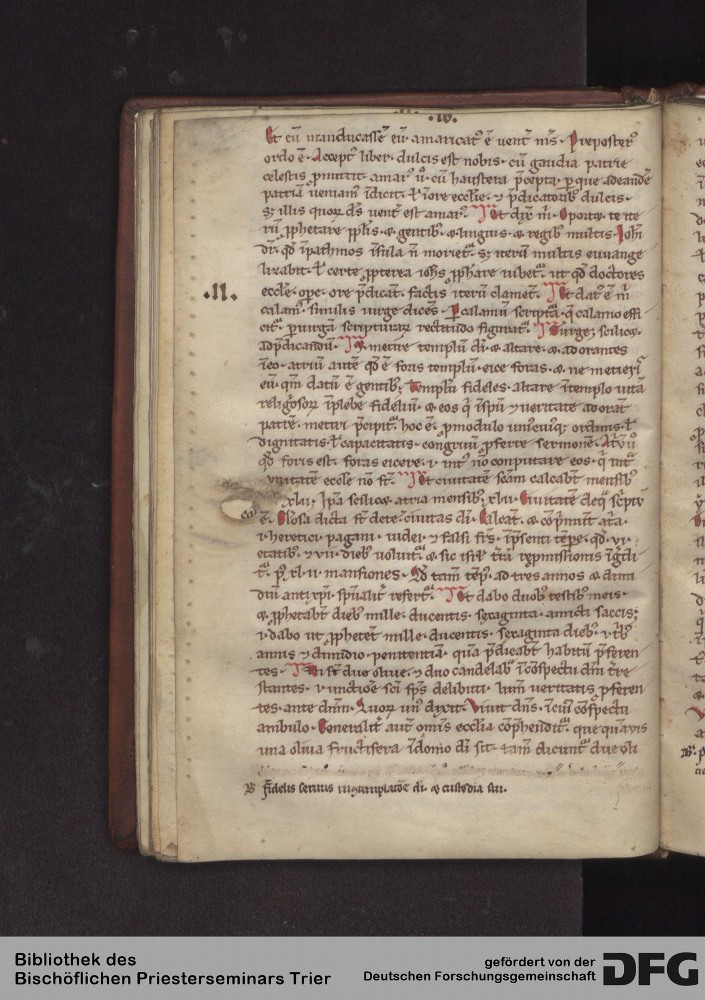 .IV.
Et cū manducassē eū amaricat' ē vent' m̄s. Preposter'
ordo ē. Accept' liber dulcis est nobis. cū gaudia patrie
celestis ꝓmittit. amar' ū. cū haustera p̄cepta p que adeundē
patriā veniam' īdicit. ł īore ecclīe. ⁊ p̄dicatorib' dulcis.
s; illis quoꝝ d's vent' est amar'. Et dix̄ m̄. Oportꝫ te ite
rū ꝓphetare pp̄lis. ⁊ gentib'. ⁊ linguis. ⁊ regib' multis. Ioh'i
dr̄. qd īpathmos īsula n̄ moriet'. s; iterū multis euuange
lizabit. ł certe ꝓpterea ioh's ꝓphare iubet'. ut qd doctores
.II. eccle. ope. ore p̄dicāt. factis iterū clament. Et dat' ē m̄
calam' similis uirge dicēs. P calamū scriptā. q̄ calamo effi
cit'. p uirgā scripturaꝝ rectitudo figurat'. Surge; scilicꝫ.
adp̄dicandū. ⁊ metire templū dī. ⁊ altare. ⁊ adorantes
ī eo. atriū autē qd ē foris templū. eice foras. ⁊ ne metieris
eū. qm̄ datū ē gentib'. Templū fideles. altare ī templo uitā
religiosoꝝ īplebe fideliū. ⁊ eos q̄ īspū ⁊ ueritate adorāt
patrē. metiri p̄cipit'. hoc ē. ꝓmodulo uni'cuiq; ordinis. ł
dignitatis. ł capacitatis. congruū ꝓferre sermonē. Atriū ū
qd foris est. foras eicere. ⁊ int' nō conputare eos. q̄ int'
unitatē eccle nō st̄. Et ciuitatē scam calcabt mensib'
.xlii. Ip̄a scilicꝫ atria mensib'. xlii. Ciuitatē
ē. Gl'osa dicta st̄ de te. ciuitas dī. Calcāt. ⁊ cōp̄mūt
⁊ heretici. pagani. iudei. ⁊ falsi frs. īpsenti tēpe. qd. vi.
etatib'. ⁊ vii. dieb' voluit'. ⁊ sic isrl' trā repmissionis īgdi
t'. p' xl. ii mansiones. Ad tam tēp'. ad tres annos ⁊ dimi
diū antixpi. spūalit' refert'. Et dabo duob' testib' meis.
⁊ ꝓphetabt dieb' mille. ducentis. sexaginta. amicti saccis;
⁊ dabo ut ꝓphetēt mille. ducentis. sexaginta dieb'. ⁊ trib'
annis ⁊ dimidio. penitentiā. quā p̄dicabt habitū p̄feren
tes. Hi st̄ due oliue. ⁊ duo candelab' īcōspectu dīn tr̄e
stantes. ⁊ unctiōe sc̄i sps delibuti. lum̄ ueritatis p̄feren
tes. ante dnm̄. Quoꝝ un' dixit. Viuit dn̄s. īcui' cōspectu
ambulo. Generalit' aut' omīs ecclia cōp̄hendit'. que quāuis
una oliua fructifera īdomo dī sit. tam̄ dicunt' due oli
Fidelis seruus ī uꝯtemplatōē dī. ⁊ custodia sui.
Bibliothek des
Bischöflichen Priesterseminars Trier
gefördert von der
Deutschen Forschungsgemeinschaft
DFG